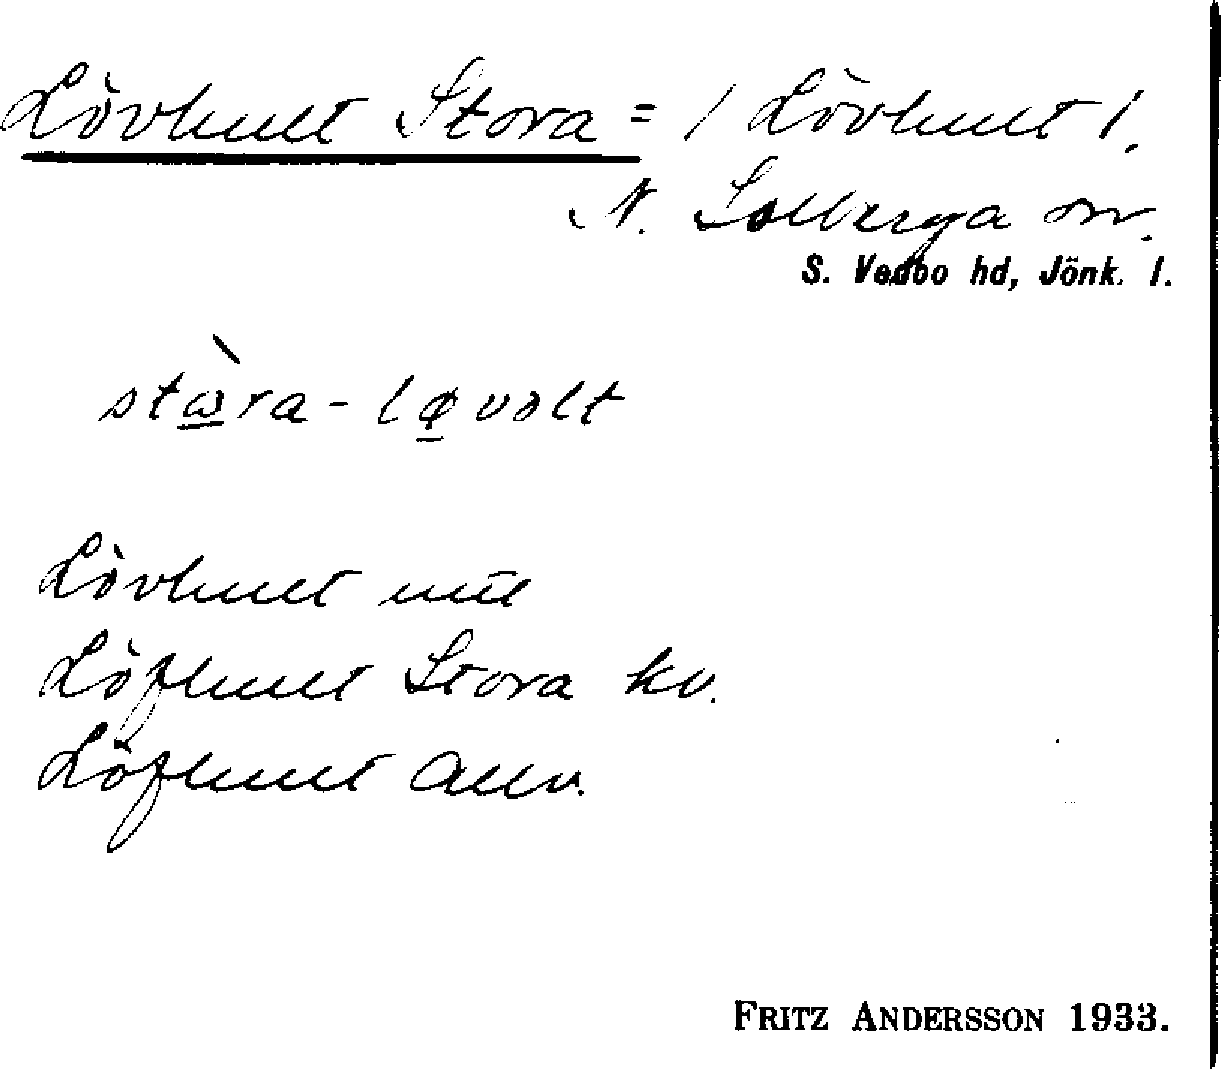 Lövhult Stora = / Lövhult /.
N. Solberga sn.
S. Vedbo hd, Jönk. l.
stὼ̲ra-lø̲vəlt
Lövhult
Löfhult Stora kv.
Löfhult Allv.
FRITZ ANDERSSON 1933.